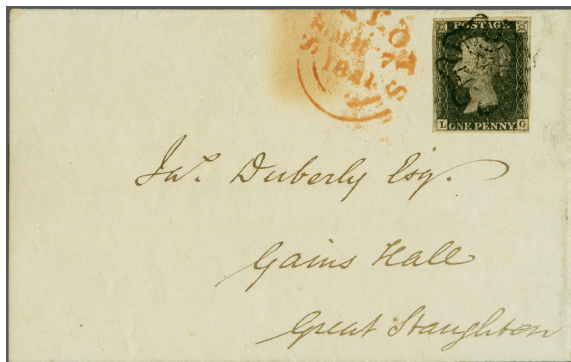 POSTAGE
L ONE PENNY G
1841
Jas. Duberly Esq.
Gains Hall
Great Staughton